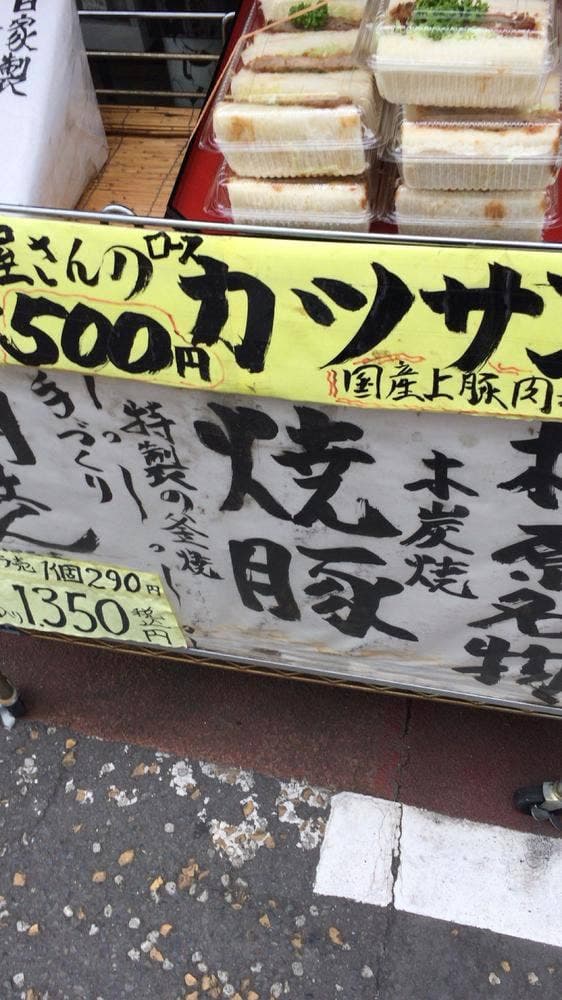 自家製
屋さんの
ロース
カツサン
500円
国産上豚肉
手づくり
特製の釜焼
焼豚
木炭焼
原名物
1個290円
1350円
税込